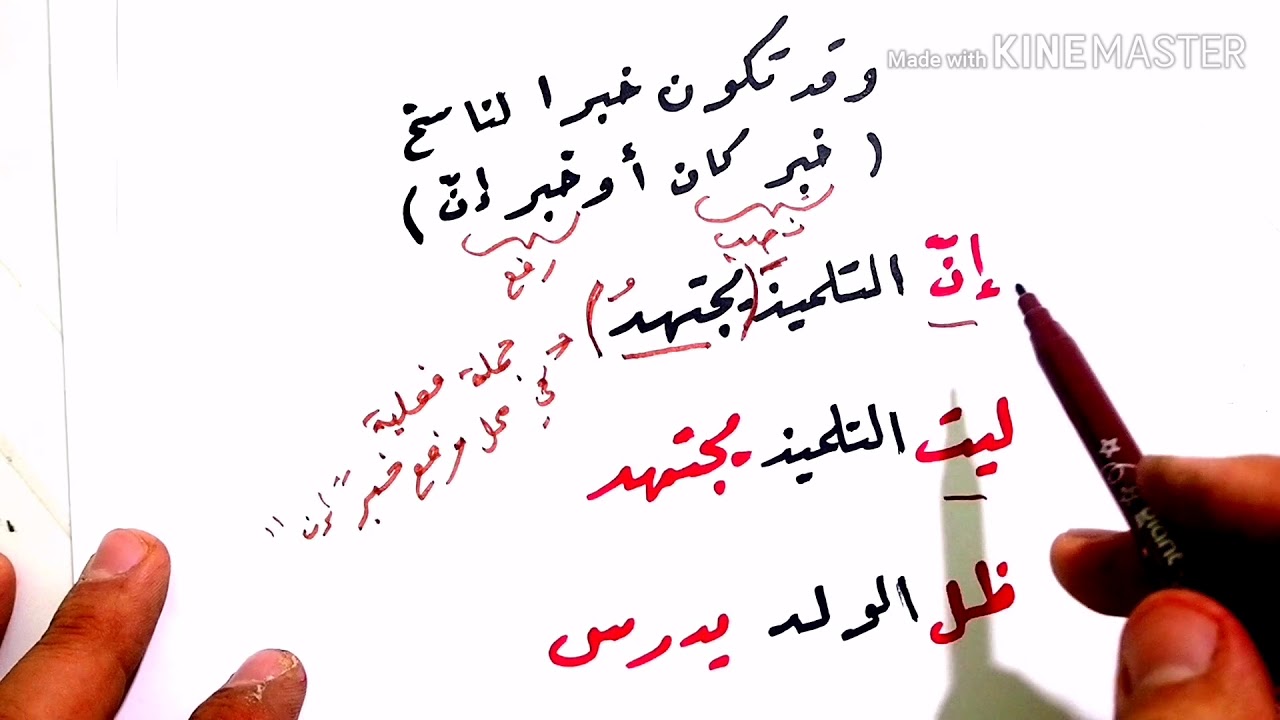 Made with KINEMASTER
وقد تكون خبرا لناسخ
( خبر كان أو خبر إنّ )
نصب
رفع
إنّ التلميذَ (يجتهدُ)
جملة فعلية
في محل رفع خبر "إن"
ليت التلميذ يجتهد
ظل الولد يدرس
Giant